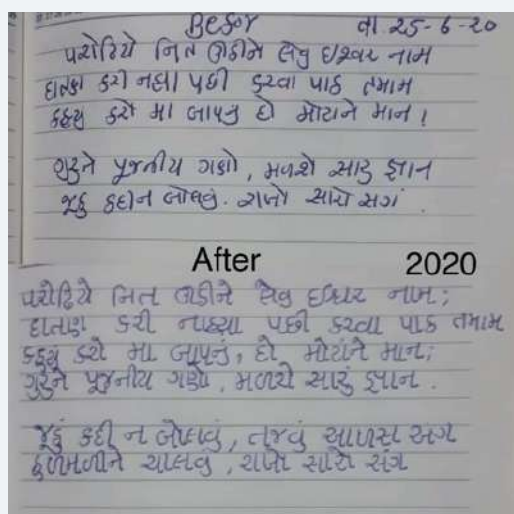 Before તા.25-6-20
પરોઢિયે નિત ઊઠીને લેવુ ઈશ્વર નામ
દાતણ કરી નહાી પછી કરવા પાઠ તમામ
કહ્યુ કરો મા બાપનું દો મોટાને માન !
ગુરુને પૂજનીય ગણો, મળશે સારુ જ્ઞાન
જૂઠું કદીન બોલવું. રાખો સારો સંગ
After 2020
પરોઢિયે નિત ઊઠીને લેવુ ઈશ્વર નામ;
દાતણ કરી નાહ્યા પછી કરવા પાઠ તમામ
કહ્યુ કરો મા બાપનું, દો મોટાંને માન;
ગુરુને પૂજનીય ગણો, મળશે સારું જ્ઞાન.
જૂઠું કદી ન બોલવું, તજવું આળસ અંગ
હળીમળીને ચાલવું, રાખો સારો સંગ